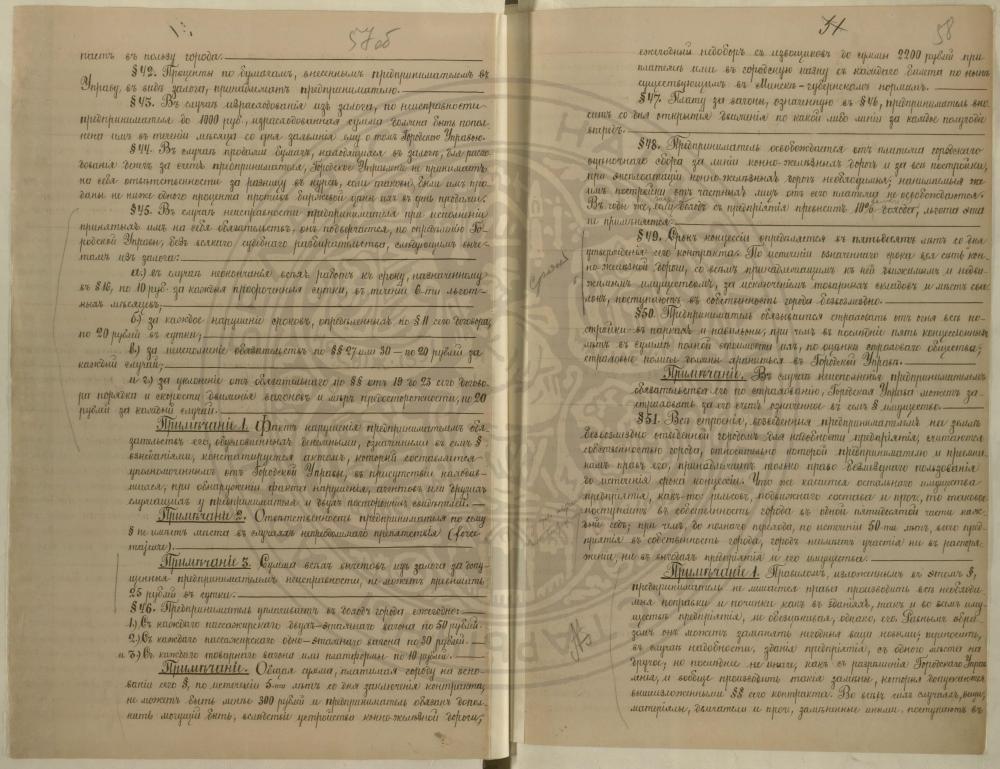 57 об
паетъ въ пользу города.
§ 42. Проценты по бумагамъ, внесеннымъ предпринимателемъ въ
Управу, въ видѣ залога, принадлежатъ предпринимателю.
§ 43. Въ случаѣ израсходованія изъ залога, по неисправности
предпринимателя до 1000 руб., израсходованная сумма должна быть попол-
нена имъ въ теченіи мѣсяца со дня заявленія ему о томъ Городскою Управою.
§ 44. Въ случаѣ продажи бумагъ, находящихся въ залогѣ, для расхо-
дованія денегъ за счетъ предпринимателя, Городское Управленіе не принимаетъ
на себя отвѣтственности за разницу въ курсѣ, если таковыя были имъ про-
даны не ниже одного процента противъ биржевой цѣны ихъ въ день продажи.
§ 45. Въ случаѣ неисправности предпринимателя при исполненіи
принятыхъ имъ на себя обязательствъ, онъ подвергается, по опредѣленію Го-
родской Управы, безъ всякаго судебнаго разбирательства, слѣдующимъ выче-
тамъ изъ залога:
а.) въ случаѣ неокончанія всѣхъ работъ къ сроку, назначенному
въ § 16, по 10 руб. за каждыя просроченныя сутки, въ теченіи 6-ти льгот-
ныхъ мѣсяцевъ;
б.) за каждое нарушеніе сроковъ, опредѣленныхъ по § 11 сего договора,
по 20 рублей въ сутки;
в.) за неисполненіе обязательствъ по §§ 27 или 30 — по 20 рублей за
каждый случай;
и г.) за уклоненіе отъ обязательнаго по §§ отъ 19 до 23 сего догово-
ра порядка и скорости движенія вагоновъ и мѣръ предосторожности, по 20
рублей за каждый случай.
Примѣчаніе 1. Фактъ нарушенія предпринимателемъ обя-
зательствъ его, обусловленныхъ денежными, означенными въ семъ §
взысканіями, констатируется актомъ, который составляется
уполномоченнымъ отъ Городской Управы, въ присутствіи находив-
шихся, при обнаруженіи факта нарушенія, агентовъ или другихъ
служащихъ у предпринимателя и двухъ постороннихъ свидѣтелей.
Примѣчаніе 2. Отвѣтственность предпринимателя по сему
§ не имѣетъ мѣста въ случаяхъ непреодолимаго препятствія (force
majeure).
Примѣчаніе 3. Сумма всѣхъ вычетовъ изъ залога за допу-
щенныя предпринимателемъ неисправности, не можетъ превысить
25 рублей въ сутки.
§ 46. Предприниматель уплачиваетъ въ доходъ города ежегодно:
1.) Съ каждаго пассажирскаго двухъ-этажнаго вагона по 50 рублей.
2.) Съ каждаго пассажирскаго одно-этажнаго вагона по 30 рублей.
и 3.) Съ каждаго товарнаго вагона или платформы по 10 рублей.
Примѣчаніе. Общая сумма, платимая городу на осно-
ваніи сего §, по истеченіи 5-ти лѣтъ со дня заключенія контракта,
не можетъ быть менѣе 300 рублей и предприниматель обязанъ допол-
нять могущій быть, вслѣдствіе устройства конно-желѣзной дороги,
58
ежегодный недоборъ съ извощиковъ до суммы 2200 рублей при
платежѣ ими въ городскую казну съ каждаго билета по нынѣ
существующимъ въ Минскѣ-губернскомъ нормамъ.
§ 47. Плату за вагоны, означенную въ § 46, предприниматель вно-
ситъ со дня открытія движенія по какой либо линіи за каждое полугодіе
впередъ.
§ 48. Предприниматель освобождается отъ платежа городскаго
оцѣночнаго сбора за линіи конно-желѣзныхъ дорогъ и за всѣ постройки,
при эксплоатаціи конно-желѣзныхъ дорогъ необходимыя; нанимаемыя же
имъ постройки отъ частныхъ лицъ отъ его платежа не освобождаются.
Въ годы же, если доходъ съ предпріятія превыситъ 10%, льгота эта
не примѣняется.
§ 49. Срокъ концессіи опредѣляется въ пятьдесятъ лѣтъ со дня
утвержденія сего контракта. По истеченіи означеннаго срока вся сѣть кон-
но-желѣзной дороги, со всѣмъ принадлежащимъ къ ней движимымъ и недви-
жимымъ имуществомъ, за исключеніемъ товарныхъ складовъ и мѣстъ скла-
довъ, поступаютъ въ собственность города безвозмездно.
§ 50. Предприниматель обязывается страховать отъ огня всѣ по-
стройки въ паркахъ и павильоны; при чемъ въ послѣдніе пять концессіонныхъ
лѣтъ въ суммѣ полной стоимости ихъ, по оцѣнкѣ страховаго общества;
страховые полисы должны храниться въ Городской Управѣ.
Примѣчаніе. Въ случаѣ неисполненія предпринимателемъ
обязательства его по страхованію, Городская Управа можетъ за-
страховать за его счетъ означенное въ семъ § имущество.
§ 51. Всѣ строенія, возведенныя предпринимателемъ на землѣ
безвозмездно отведенной городомъ для надобности предпріятія, считаются
собственностью города, относительно которой предпринимателю и преемни-
камъ правъ его, принадлежитъ только право безмезднаго пользованія
до истеченія срока концессіи. Что же касается остальнаго имущества
предпріятія, какъ-то: рельсовъ, подвижнаго состава и проч., то таковое
поступаетъ въ собственность города въ одной пятидесятой части каж-
дый годъ; при чемъ, до полнаго перехода, по истеченіи 50-ти лѣтъ, всего пред-
пріятія въ собственность города, городъ не имѣетъ участія ни въ распоря-
женіи, ни въ выгодахъ предпріятія и его имущества.
Примѣчаніе 1. Правиломъ, изложеннымъ въ этомъ §,
предприниматель не лишается права производить всѣ необходи-
мыя поправки и починки какъ въ зданіяхъ, такъ и во всемъ иму-
ществѣ предпріятія, не обезцѣнивая, однако, его. Равнымъ обра-
зомъ онъ можетъ замѣнять негодныя вещи новыми; переносить,
въ случаѣ надобности, зданія предпріятія, съ одного мѣста на
другое; но послѣднее не иначе, какъ съ разрѣшенія Городскаго Управ-
ленія, и вообще производить такія замѣны, которыя допускаются
вышеизложенными §§ сего контракта. Во всѣхъ сихъ случаяхъ, вещи,
матеріалы, двигатели и проч., замѣненные иными, поступаютъ въ